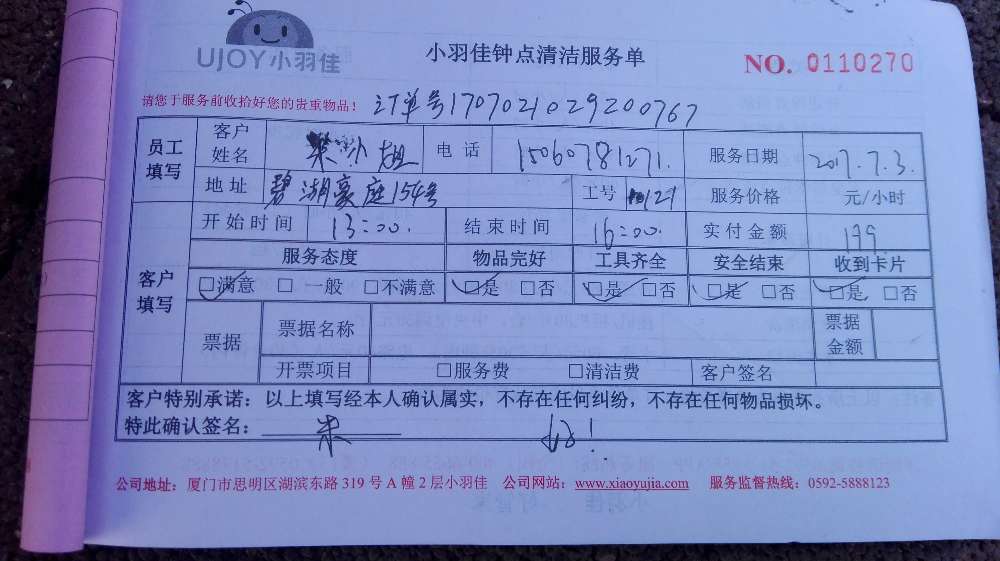 UJOY小羽佳
小羽佳钟点清洁服务单 NO. 0110270
请您于服务前收拾好您的贵重物品! 订单号1707021029200767
员工填写 客户姓名 小姐 电话 15060781271. 服务日期 2017.7.3.
地址 碧湖豪庭154号 工号 121 服务价格 元/小时
开始时间 13:00. 结束时间 16:00. 实付金额 199
客户填写 服务态度 物品完好 工具齐全 安全结束 收到卡片
☑满意 □ 一般 □不满意 ☑是 □否 ☑是 □否 ☑是 □否 ☑是 □否
票据 票据名称 票据金额
开票项目 □服务费 □清洁费 客户签名
客户特别承诺：以上填写经本人确认属实，不存在任何纠纷，不存在任何物品损坏。
特此确认签名：朱 好!
公司地址：厦门市思明区湖滨东路 319 号 A 幢 2 层小羽佳 公司网站：www.xiaoyujia.com 服务监督热线：0592-5888123